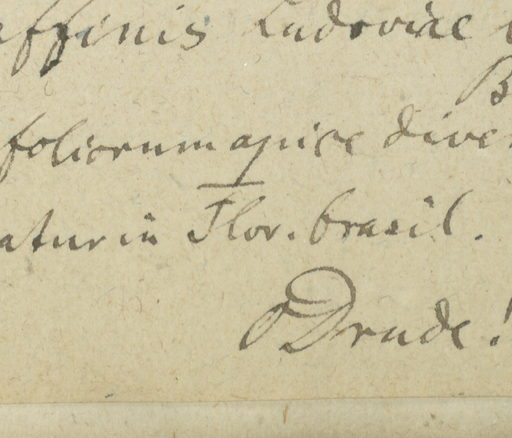 affinis Ludoviae
B
foliorum apice diver
atur in Flor. brasil.
O Drude!